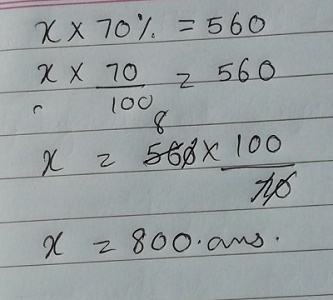 x × 70% = 560
x × 70/100 = 560
8
x = 560 × 100/70
x = 800. ans.